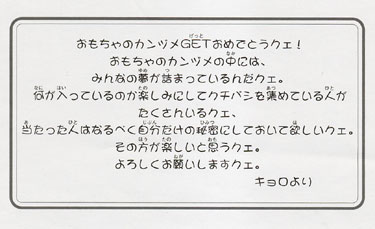 おもちゃのカンヅメGETおめでとうクェ!
おもちゃのカンヅメの中には、
みんなの夢が詰まっているんだクェ。
何が入っているのか楽しみにしてクチバシを集めている人が
たくさんいるクェ、
当たった人はなるべく自分だけの秘密にしておいて欲しいクェ。
その方が楽しいと思うクェ。
よろしくお願いしますクェ。
キョロより